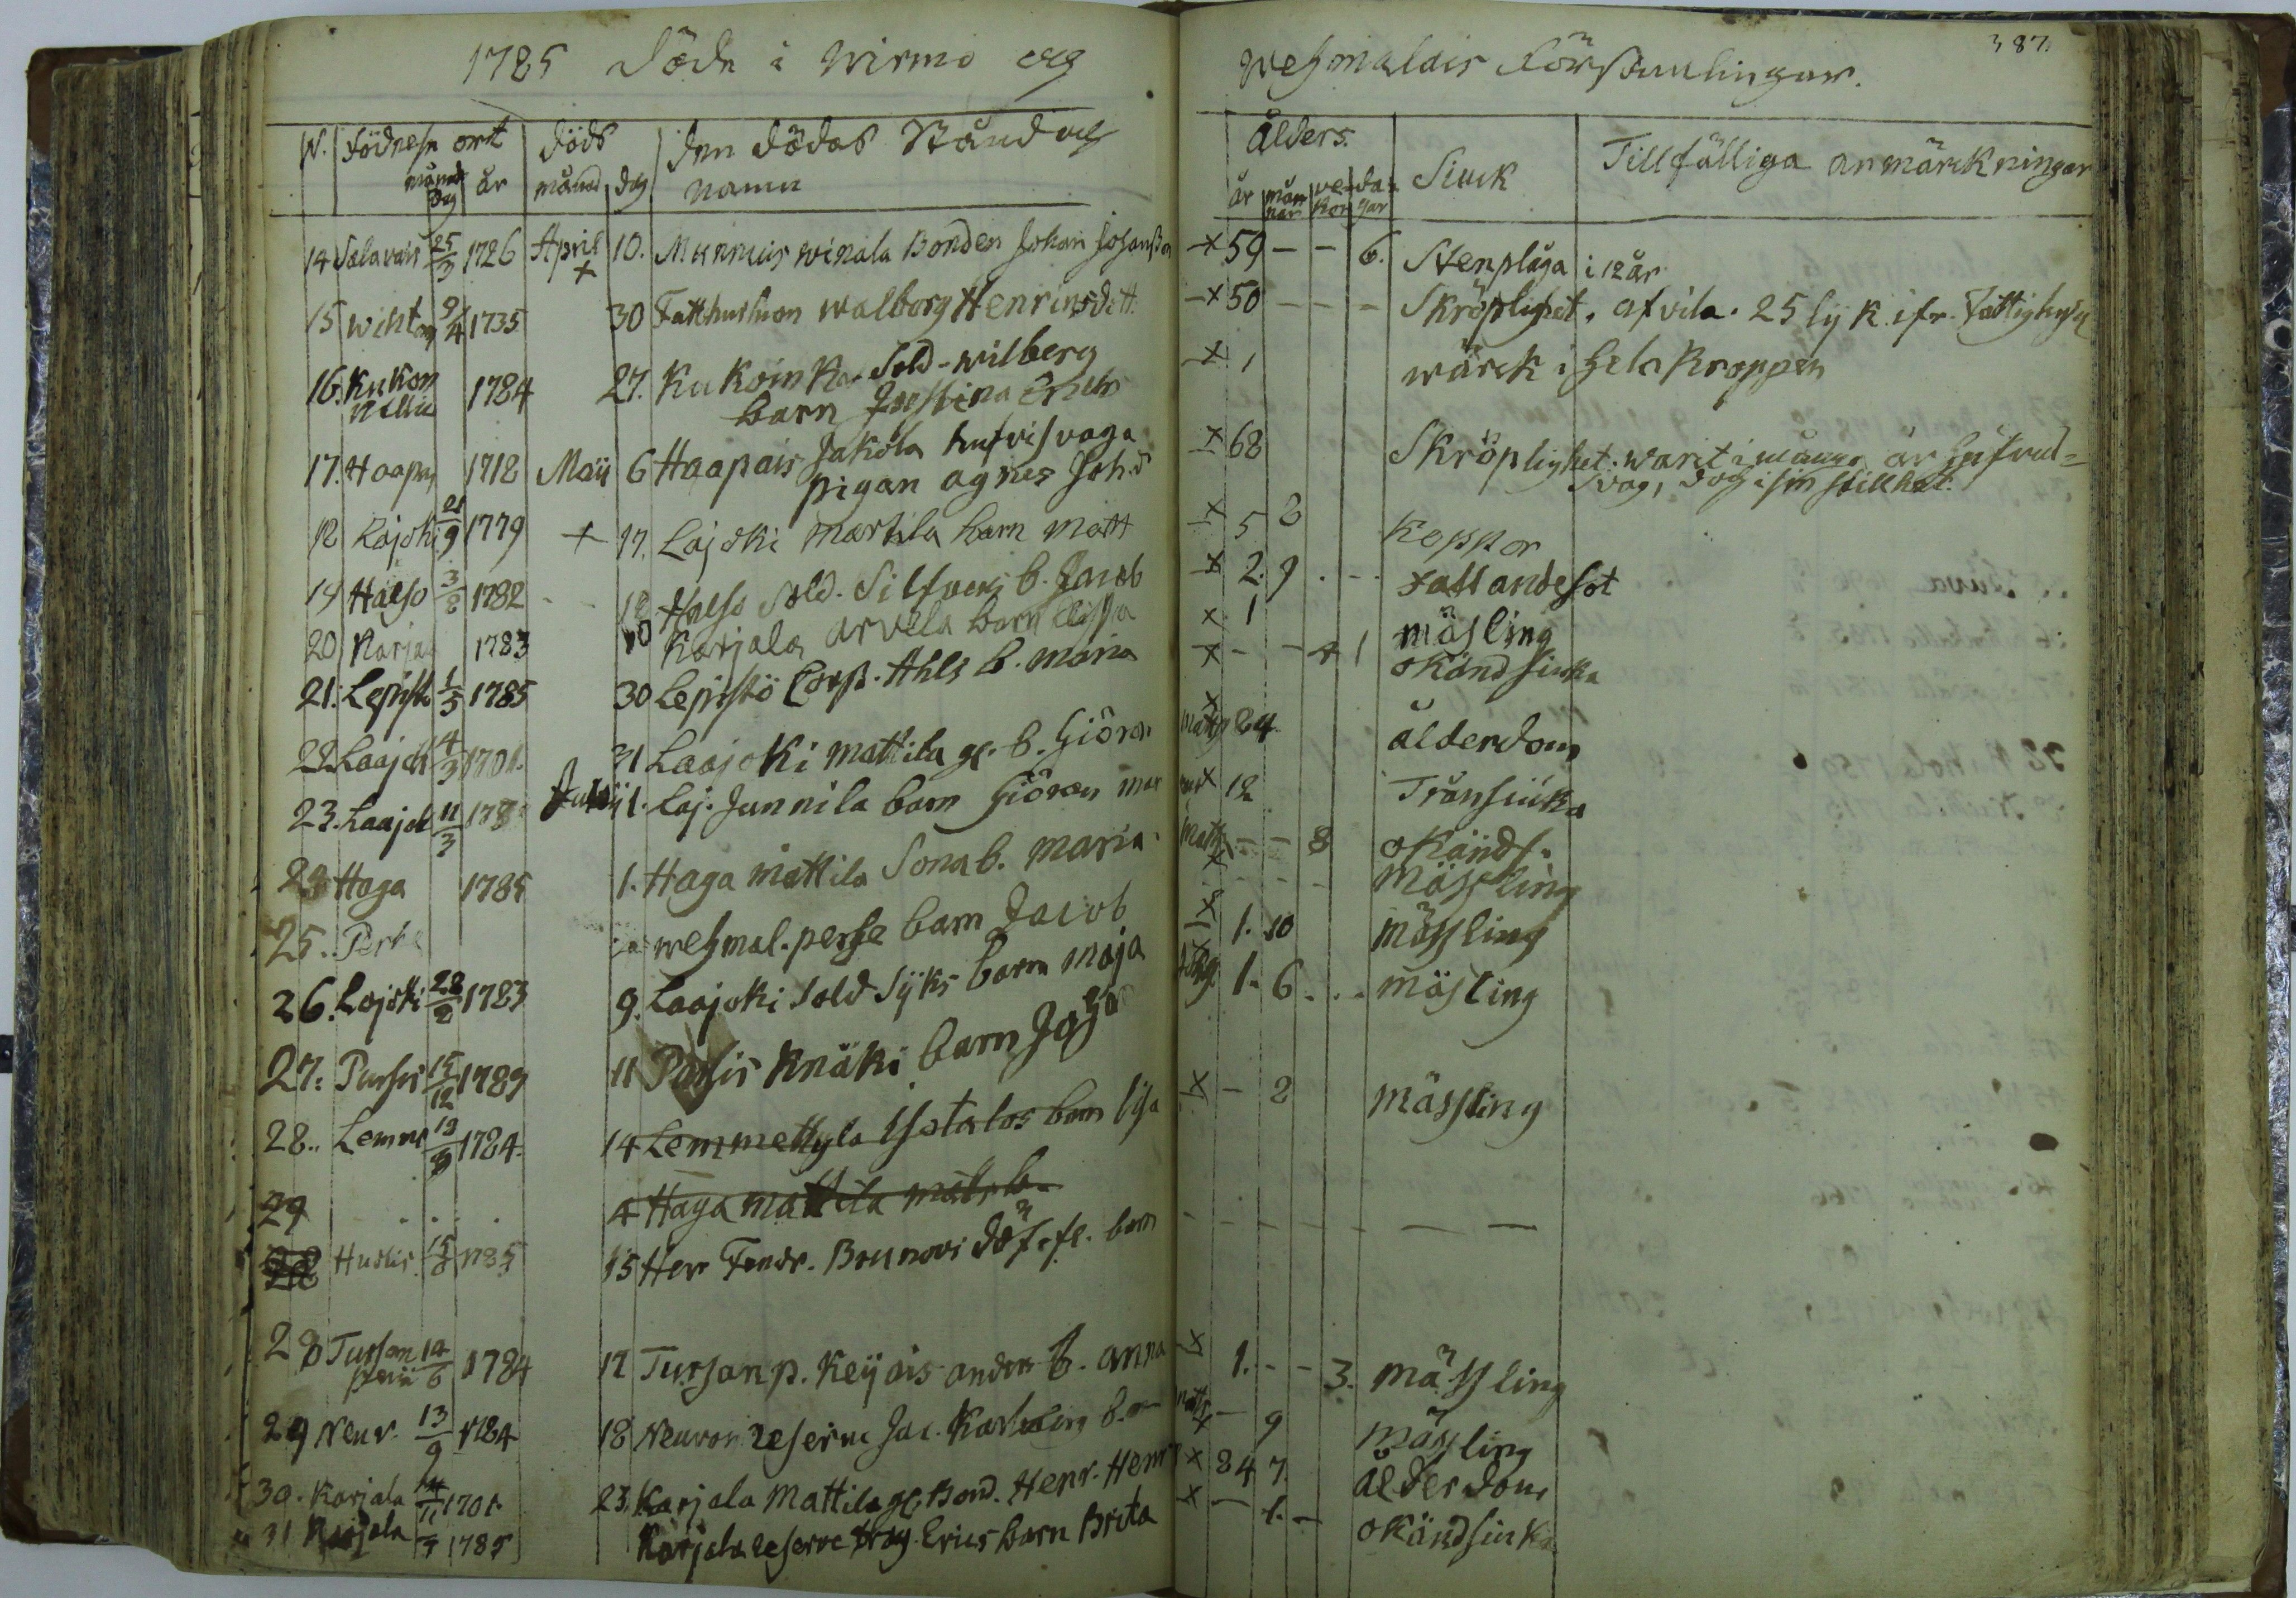 1785 Döde i Wirmo och
Wehmalais Församlingar.
387.
N. Födnese ort Döds Den Dödas Stånd och
månad dag år månad dag namn
Ålders.
år måna nar vec kor da gar Siuk Tillfälliga anmärckningar
14 Salavais 25/3 1726 April 10. Munnuis winala Bonden Johan Johansson 59 - - 6. Stenplåga i 12 år
15 9/4 1735 30 Fatthushion walborg Henricsdott. 50 - - - Skröplighet. af vila. 25 ifr. Fattighus
16. Kukon 1784 27. Kukoinka Sold. wilberg 1 wärck i hela kroppen
barn Justina
17. Haapa 1718 Maii 6 Haapais Jakola hufvisvaga 68 Skröplighet. warit i många år hufvud=
pigan agnes Joh.d svag, dog i sin stillhet.
18 Lajoki 21/9 1779 17. Lajoki martila barn Matt 5 8 Koppor
19 Halso 3/8 1782 18 Halso Sold. Silfverb b. Jacob 2. 9 . - . Fallandesot
20 Karja 1783 20 Karjala arvela barn Lissa 1 mäsling
21. Lepist 1/5 1785 30 Lepistö Corp. Ahls b. maria - - 4 1 okändsiuka
22. Laajok 4/3 1701. 31 Laajoki mattila gl. b. Giöran 84 ålderdom
23. Laajok 11/3 178 1. Laj. Junnila barn Giöran 12 Tränsiuka
24 Haga 1785 1. Haga mattila Sona b. maria. - - 8 okänds.
mässling
25. Perhe wehmal. perhe barn Jacob 1. 10 mässling
26. Lajoki 28/2 1783 9. Laajoki Sold Syks barn maja 1. 6 . . . mäsling
27: 15/12 1789 11 Knäki barn
28.. Lemm 13/9 1784. 14 Lemmettyla Isotalos barn Lisa - 2 mässling
29 . . . . 4 Haga mattila mats b.
28 15/8 1785 15 Herr Fendr. Brunovi döf. fl. barn - - - - - - -
28 Tursan 14/6 1784 17 Tursanp. Keyais anders b. anna 1. - - 3. mässling
29 Neuv. 13/9 1784 18 Neuvon reserve Jac. b. - 9 mässling
30. Karjala 14/11 1701. 23. Karjala Mattila gl. Bond. Henr. Henr 84 7. ålderdom
31 Karjala 1785 Karjala reserve drag. Erics barn Brita - 1. - okändsiuka